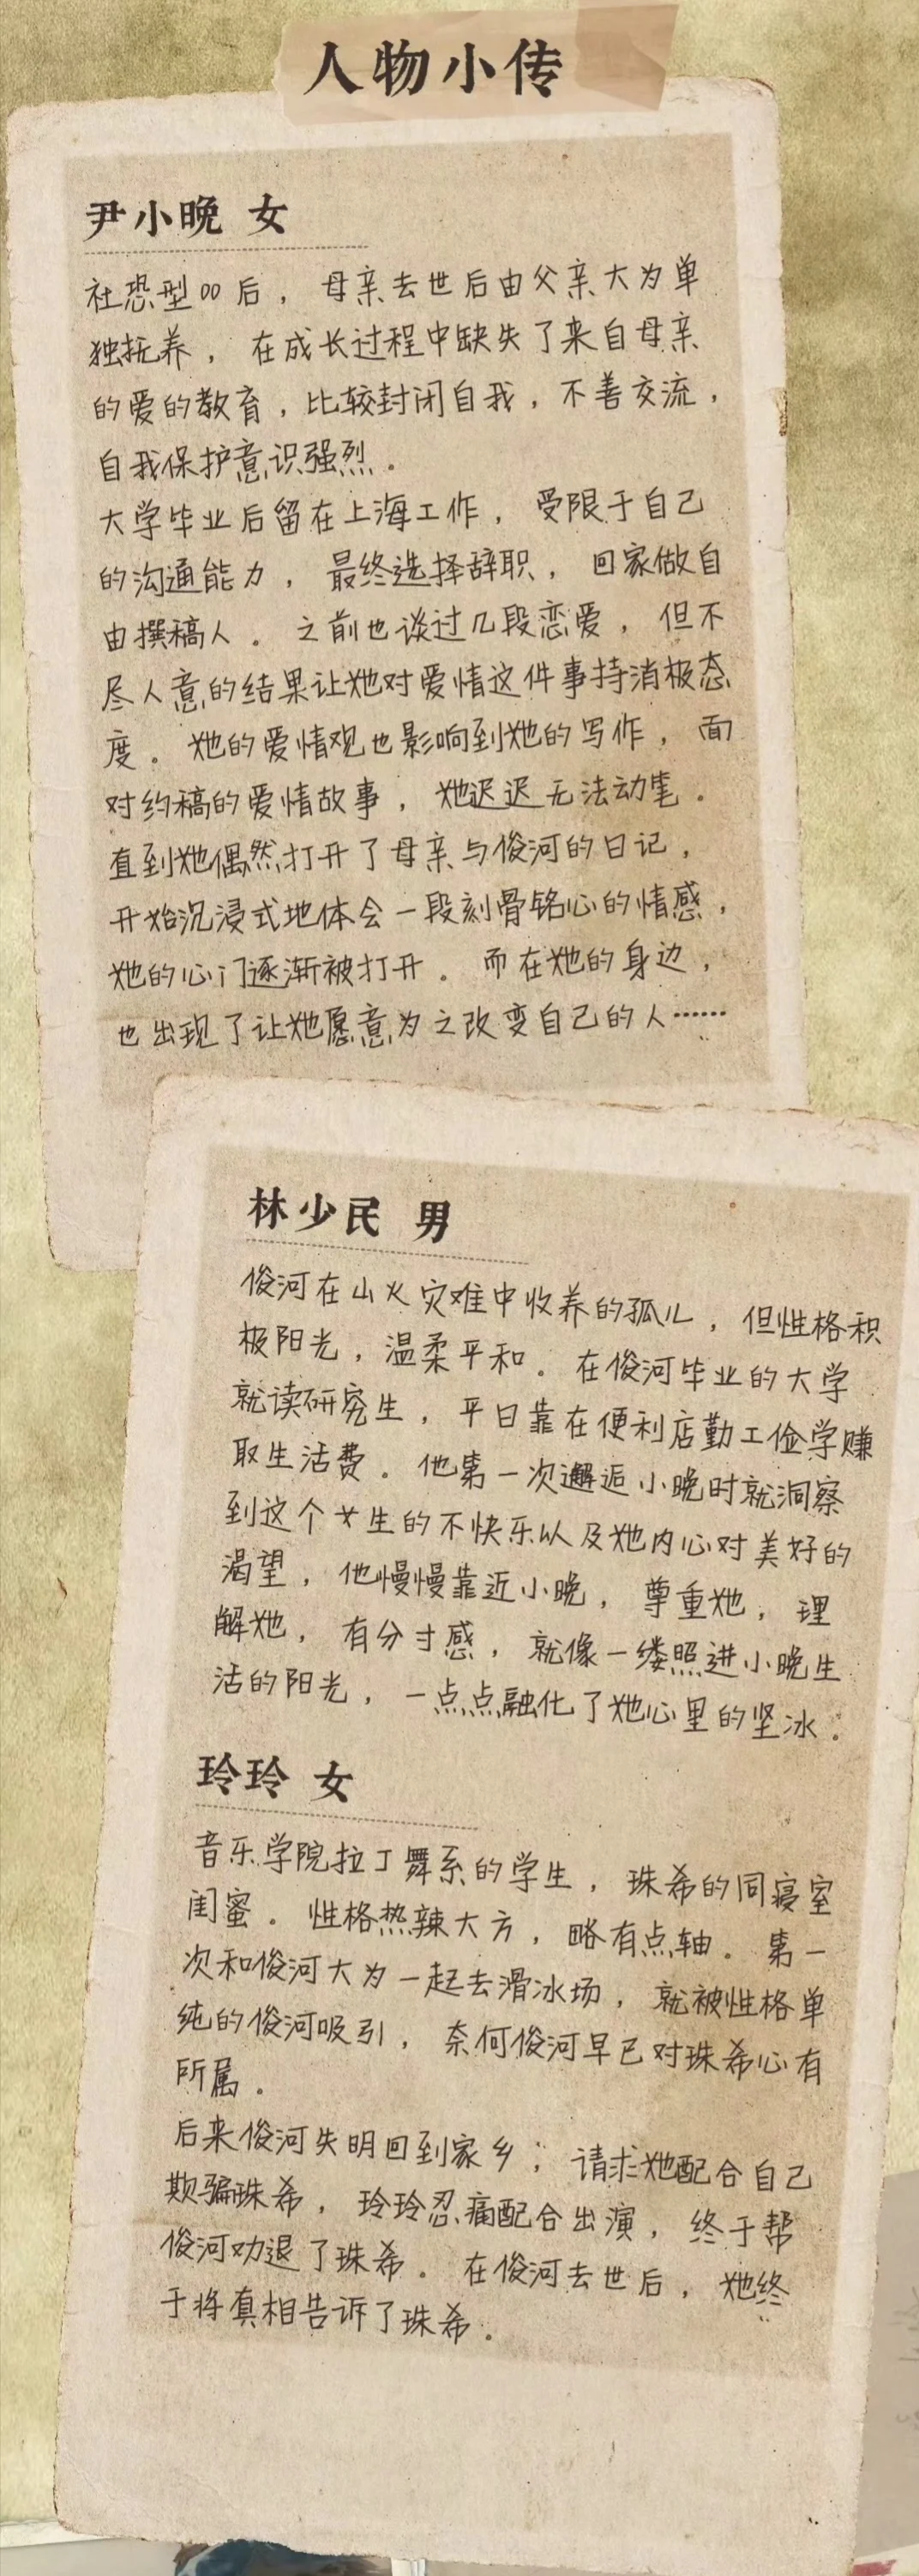 人物小传
尹小晚 女
社恐型00后，母亲去世后由父亲大为单
独抚养，在成长过程中缺失了来自母亲
的爱的教育，比较封闭自我，不善交流，
自我保护意识强烈。
大学毕业后留在上海工作，受限于自己
的沟通能力，最终选择辞职，回家做自
由撰稿人。之前也谈过几段恋爱，但不
尽人意的结果让她对爱情这件事持消极态
度。她的爱情观也影响到她的写作，面
对约稿的爱情故事，她迟迟无法动笔。
直到她偶然打开了母亲与俊河的日记，
开始沉浸式地体会一段刻骨铭心的情感，
她的心门逐渐被打开。而在她的身边，
也出现了让她愿意为之改变自己的人……
林少民 男
俊河在山火灾难中收养的孤儿，但性格积
极阳光，温柔平和。在俊河毕业的大学
就读研究生，平日靠在便利店勤工俭学赚
取生活费。他第一次邂逅小晚时就洞察
到这个女生的不快乐以及她内心对美好的
渴望，他慢慢靠近小晚，尊重她，理
解她，有分寸感，就像一缕照进小晚生
活的阳光，一点点融化了她心里的坚冰。
玲玲 女
音乐学院拉丁舞系的学生，珠希的同寝室
闺蜜。性格热辣大方，略有点轴。第一
次和俊河大为一起去滑冰场，就被性格单
纯的俊河吸引，奈何俊河早已对珠希心有
所属。
后来俊河失明回到家乡；请求她配合自己
欺骗珠希，玲玲忍痛配合出演，终于帮
俊河劝退了珠希。在俊河去世后，她终
于将真相告诉了珠希。